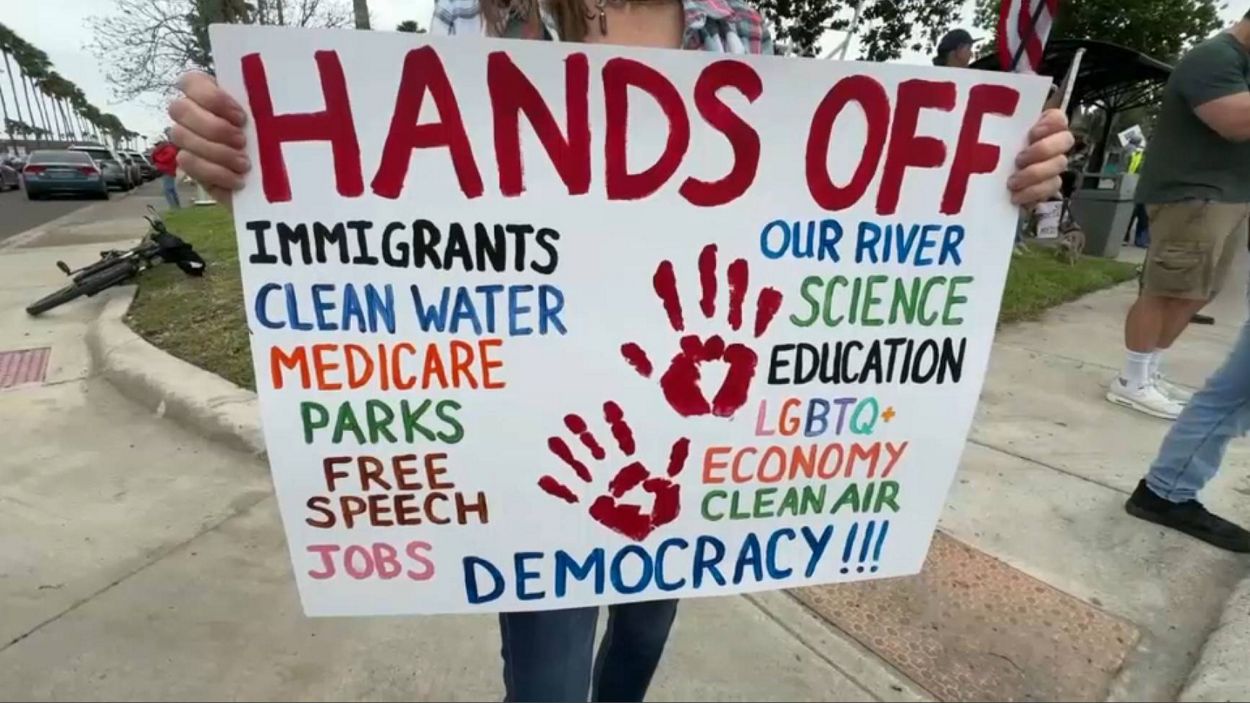 HANDS OFF
IMMIGRANTS
CLEAN WATER
MEDICARE
PARKS
FREE
SPEECH
JOBS
OUR RIVER
SCIENCE
EDUCATION
LGBTQ+
ECONOMY
CLEAN AIR
DEMOCRACY!!!